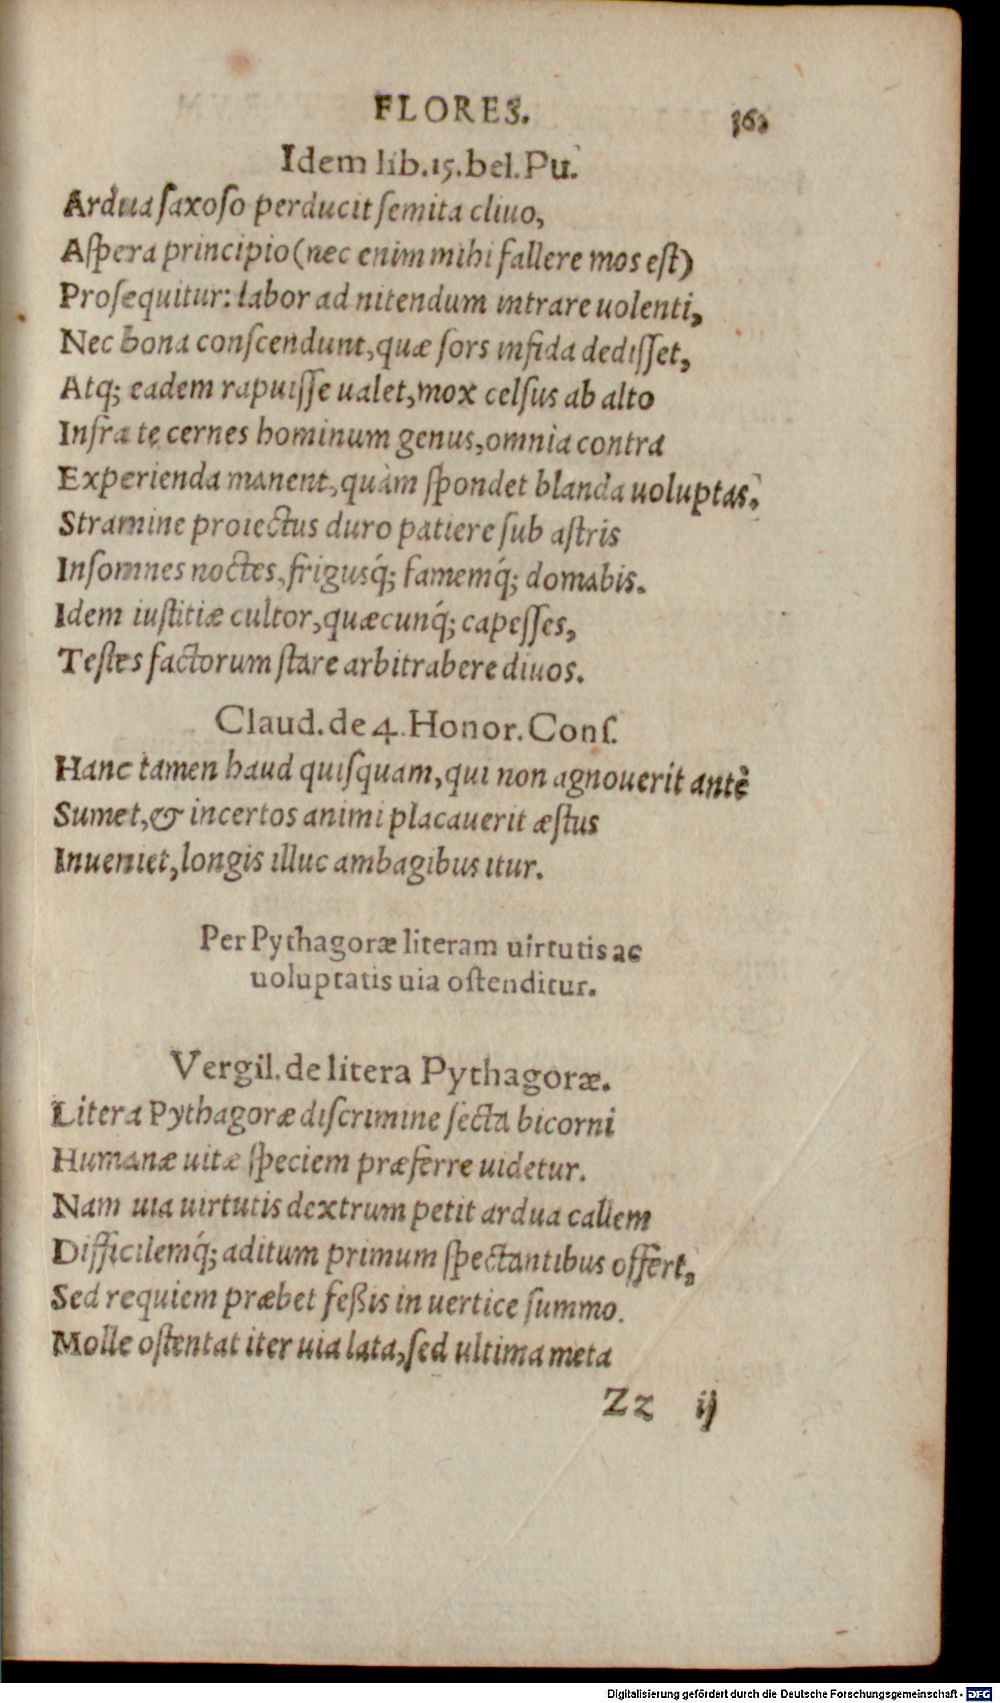 FLORES. 362
Idem lib.15.bel.Pu.
Ardua saxoso perducit semita cliuo,
Aspera principio (nec enim mihi fallere mos est)
Prosequitur: labor ad nitendum intrare uolenti,
Nec bona conscendunt, quæ sors infida dedisset,
Atq; eadem rapuisse ualet, mox celsus ab alto
Infra te cernes hominum genus, omnia contra
Experienda manent, quàm spondet blanda uoluptas.
Stramine proiectus duro patiere sub astris
Insomnes noctes, frigusq́; famemq́; domabis.
Idem iustitiæ cultor, quæcunq́; capesses,
Testes factorum stare arbitrabere diuos.
Claud. de 4. Honor. Cons.
Hanc tamen haud quisquam, qui non agnouerit antè
Sumet, & incertos animi placauerit æstus
Inueniet, longis illuc ambagibus itur.
Per Pythagoræ literam uirtutis ac
uoluptatis uia ostenditur.
Vergil. de litera Pythagoræ.
Litera Pythagoræ discrimine secta bicorni
Humanæ uitæ speciem præferre uidetur.
Nam uia uirtutis dextrum petit ardua callem
Difficilemq́; aditum primum spectantibus offert,
Sed requiem præbet feßis in uertice summo.
Molle ostentat iter uia lata, sed ultima meta
Zz ij
Digitalisierung gefördert durch die Deutsche Forschungsgemeinschaft - DFG